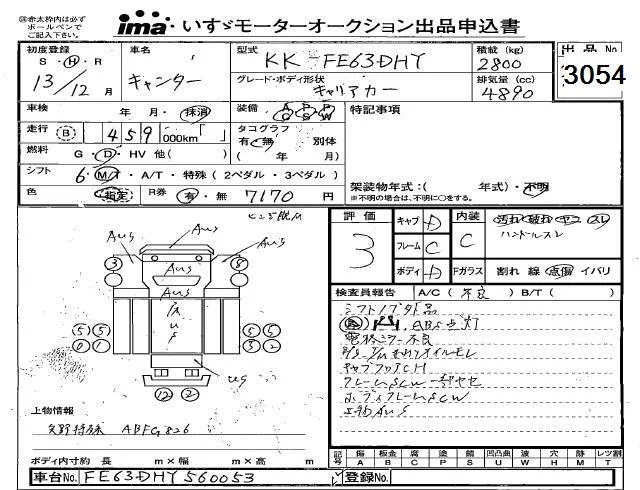 ㊟赤太枠内は必ず
ボールペンで
ご記入下さい。
ima いすゞモーターオークション出品申込書
初度登録 車名 型式 積載 (kg) 出品No
S・H・R
13/12 月 キャンター KK-FE63DHY 2800 3054
グレード・ボディ形状 排気量 (cc)
キャリアカー 4890
車検 年 月・抹消 装備 A/C P/S P/W 特記事項
走行 B 459 000km「 」 タコグラフ
有・無 別体
( 年 月)
燃料 G・D・HV 他( )
シフト 6・M/T・A/T・特殊 (2ペダル・3ペダル)
架装物年式:( 年式)・不明
※不明の場合は、不明に○をする。
色 指定 R券 有・無 7170 円
評価 3 キャブ D 内装 C 汚れ 破れ ヤコ スレ
ハンドルスレ
フレーム C
ボディ D Fガラス 割れ 線 点傷 イバリ
AuS AuS AuS
3 8
AuS
AuS
5 5 5 5
0 1 3 2
12 2
検査員報告 A/C ( 不良 ) B/T ( )
シフトノブ外品
ABS点灯
キャブフロアCH
上物AuS
上物情報
矢野特殊 ABFG826
ボディ内寸約 長 m×幅 m×高 m
記号 傷 板金 腐 塗 錆 凹凸曲 波 穴 跡 レンズ割
A B C P S U W H M T
車台No. FE63DHY 560053 登録No.